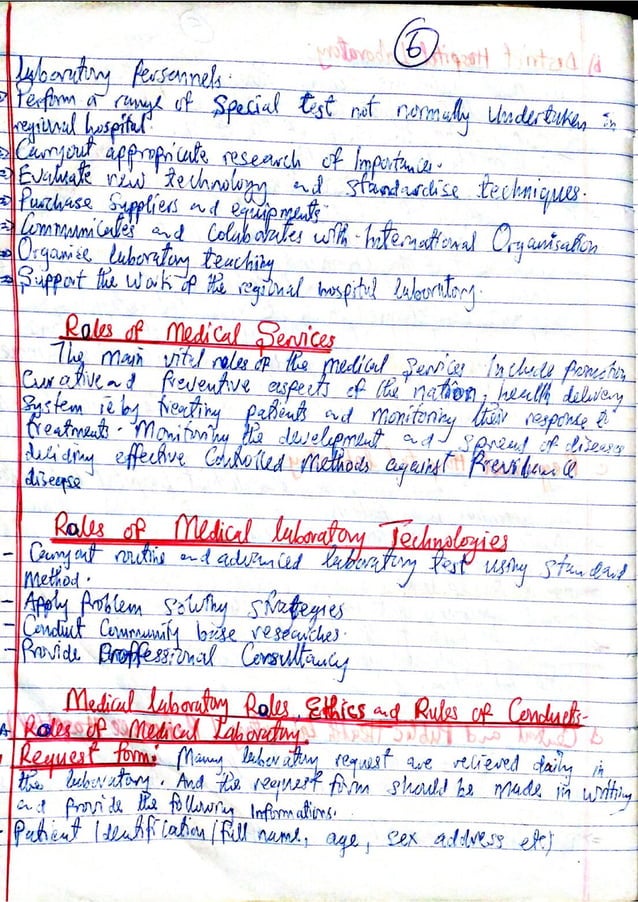 6
laboratory Personnels.
⇒ Perform a range of Special test not normally Undertaken in
regional hospital.
⇒ Carryout appropricate research of Importance.
⇒ Evaluate new technology and standardise techniques.
⇒ Purchase Suppliers and equipments
⇒ Communicates and Colaborates with International Organisation
⇒ Organise laboratory teaching
⇒ Support the work of the regional hospital laboratory.
Roles of Medical Services
The main vital roles of the medical Services Include promotion
Curative and Preventive aspects of the nation, health delivery
System ie by treating patients and monitoring their response to
treatments. Monitoring the development and spread of diseases
deciding effective Controlled Methods against Prevalence
disease
Roles of Medical laboratory Technologies
- Carryout routine and advanced laboratory test using standard
Method.
- Apply Problem Solving Strategies
- Conduct Community base researches.
- Provide Proffessional Consultancy
Medical laboratory Roles, Ethics and Rules of Conducts-
A Roles of Medical Laboratory
Request form: Many laboratory request are relieved daily in
the laboratory. And the request form should be made in writing
and Provide the following Informations.
- Patient Identification (full name, age, sex address etc)